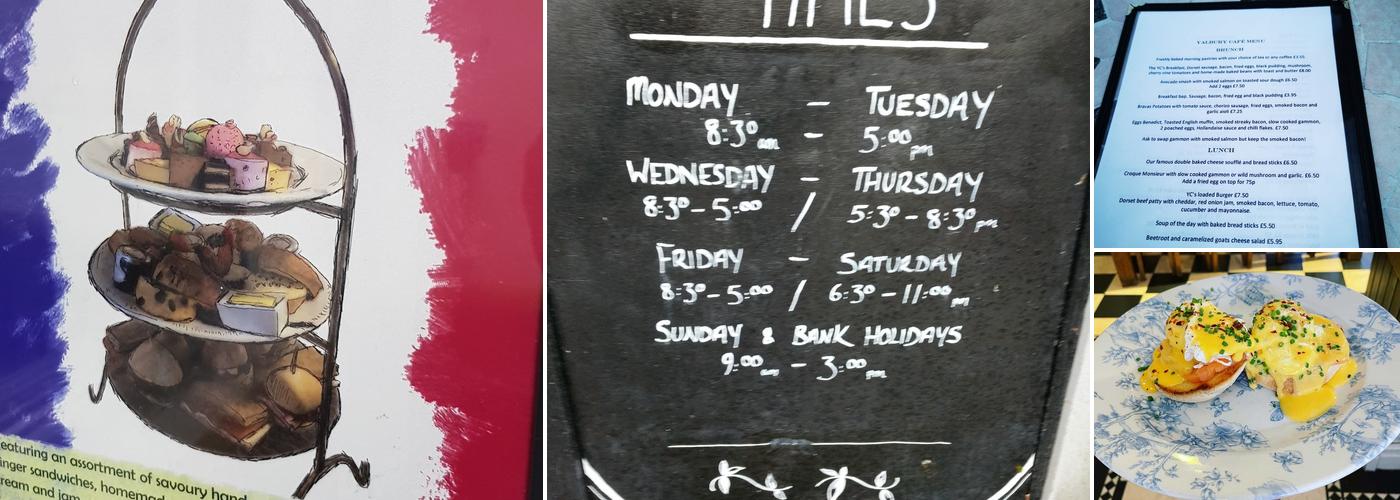 eaturing an assortment of savoury hand
inger sandwiches, homemad
ream and jam
TIMES
MONDAY - TUESDAY
8:30am - 5:00pm
WEDNESDAY - THURSDAY
8:30-5:00 / 5:30-8:30pm
FRIDAY - SATURDAY
8:30-5:00 / 6:30-11:00pm
SUNDAY & BANK HOLIDAYS
9:00am - 3:00pm
YALBURY CAFÉ MENU
BRUNCH
Freshly baked morning pastries with your choice of tea or any coffee £3.55
The YC's Breakfast, Dorset sausage, bacon, fried eggs, black pudding, mushroom,
cherry vine tomatoes and home-made baked beans with toast and butter £8.00
Avocado smash with smoked salmon on toasted sour dough £6.50
Add 2 eggs £7.50
Breakfast bap. Sausage, bacon, fried egg and black pudding £3.95
Bravas Potatoes with tomato sauce, chorizo sausage, fried eggs, smoked bacon and
garlic aioli £7.25
Eggs Benedict, Toasted English muffin, smoked streaky bacon, slow cooked gammon,
2 poached eggs, Hollandaise sauce and chilli flakes. £7.50
Ask to swap gammon with smoked salmon but keep the smoked bacon!
LUNCH
Our famous double baked cheese soufflé and bread sticks £6.50
Croque Monsieur with slow cooked gammon or wild mushroom and garlic. £6.50
Add a fried egg on top for 75p
YC's loaded Burger £7.50
Dorset beef patty with cheddar, red onion jam, smoked bacon, lettuce, tomato,
cucumber and mayonnaise.
Soup of the day with baked bread sticks £5.50
Beetroot and caramelized goats cheese salad £5.95